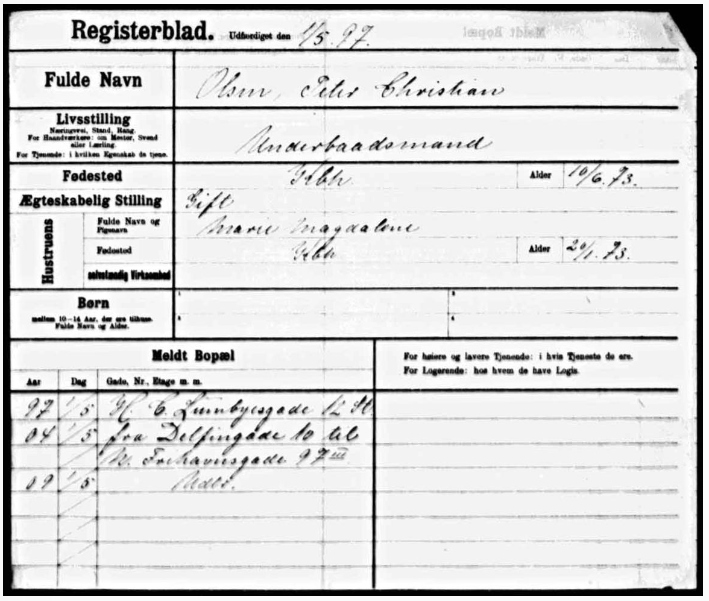 Registerblad. Udfærdiget den 1/5.97.
Fulde Navn Olsen, Peter Christian
Livsstilling
Næringsvei, Stand, Rang.
For Haandværkere: om Mester, Svend
eller Lærling.
For Tjenende: i hvilken Egenskab de tjene.
Underbaadsmand
Fødested Kbh Alder 10/6.73.
Ægteskabelig Stilling Gift
Hustruens
Fulde Navn og
Pigenavn
Marie Magdalene
Fødested Kbh Alder 20/1.73.
selvstændig Virksomhed
Børn
mellem 10-14 Aar, der ere tilhuse.
Fulde Navn og Alder.
Meldt Bopæl
Aar Dag Gade, Nr., Etage m. m.
For høiere og lavere Tjenende: i hvis Tjeneste de ere.
For Logerende: hos hvem de have Logis.
97 1/5 H. C. Lumbyesgade 12 St
04 1/5 fra Delfingade 10 til
N. Frihavnsgade 97 III
09 1/5